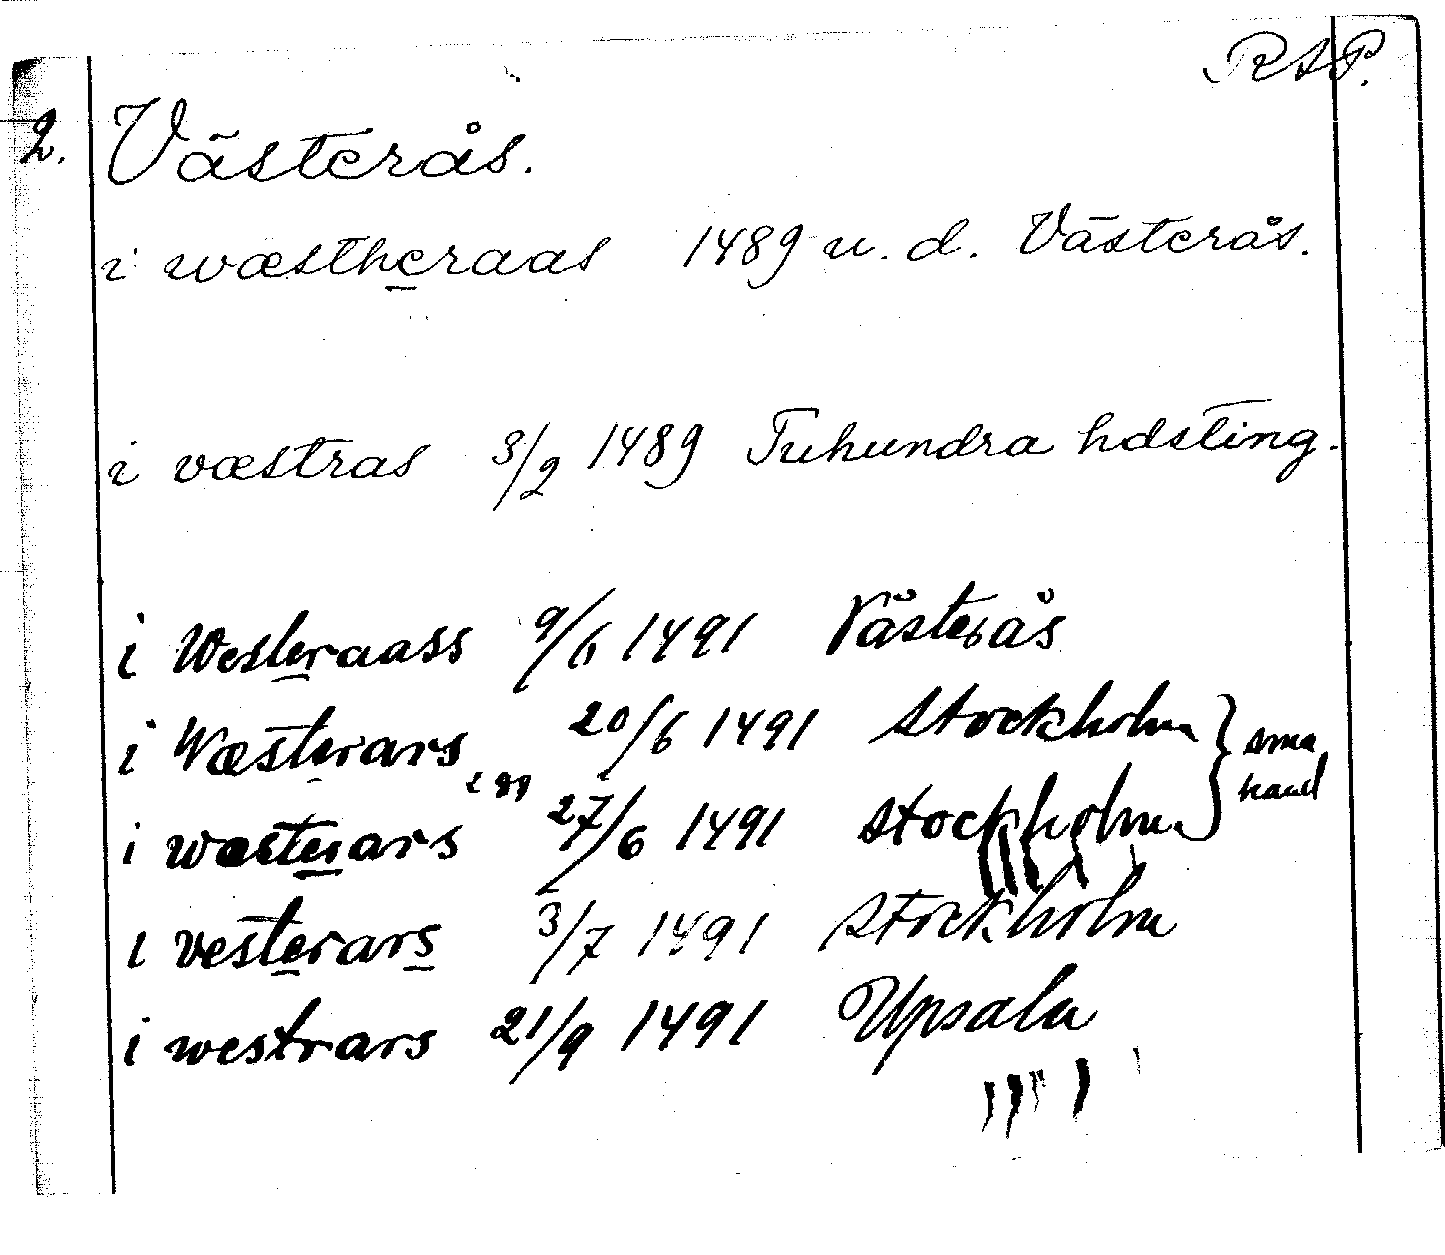 RAP.
2. Västerås.
i wæstheraas 1489 u. d. Västerås.
i væstras 3/2 1489 Tuhundra hdsting.
i Westeraass 9/6 1491 Västerås
i Wæsterars 20/6 1491 Stockholm } sma
i wæsterars 27/6 1491 Stockholm
i vesterars 3/7 1491 Stockholm
i westrars 21/9 1491 Upsala